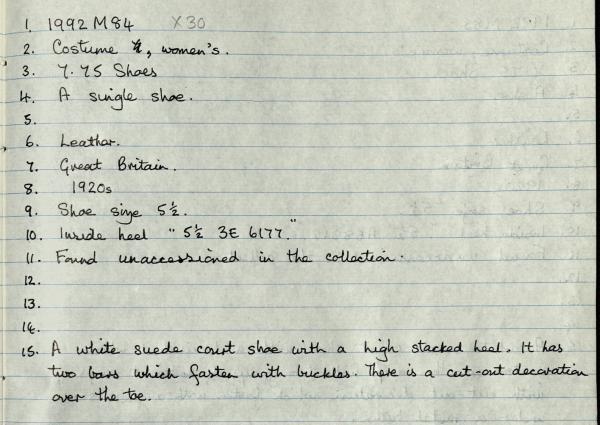 1. 1992 M84 X30
2. Costume, women's.
3. 7.75 Shoes
4. A single shoe.
5.
6. Leather.
7. Great Britain.
8. 1920s
9. Shoe size 5½.
10. Inside heel "5½ 3E 6177."
11. Found unaccessioned in the collection.
12.
13.
14.
15. A white suede court shoe with a high stacked heel. It has
two bars which fasten with buckles. There is a cut-out decoration
over the toe.